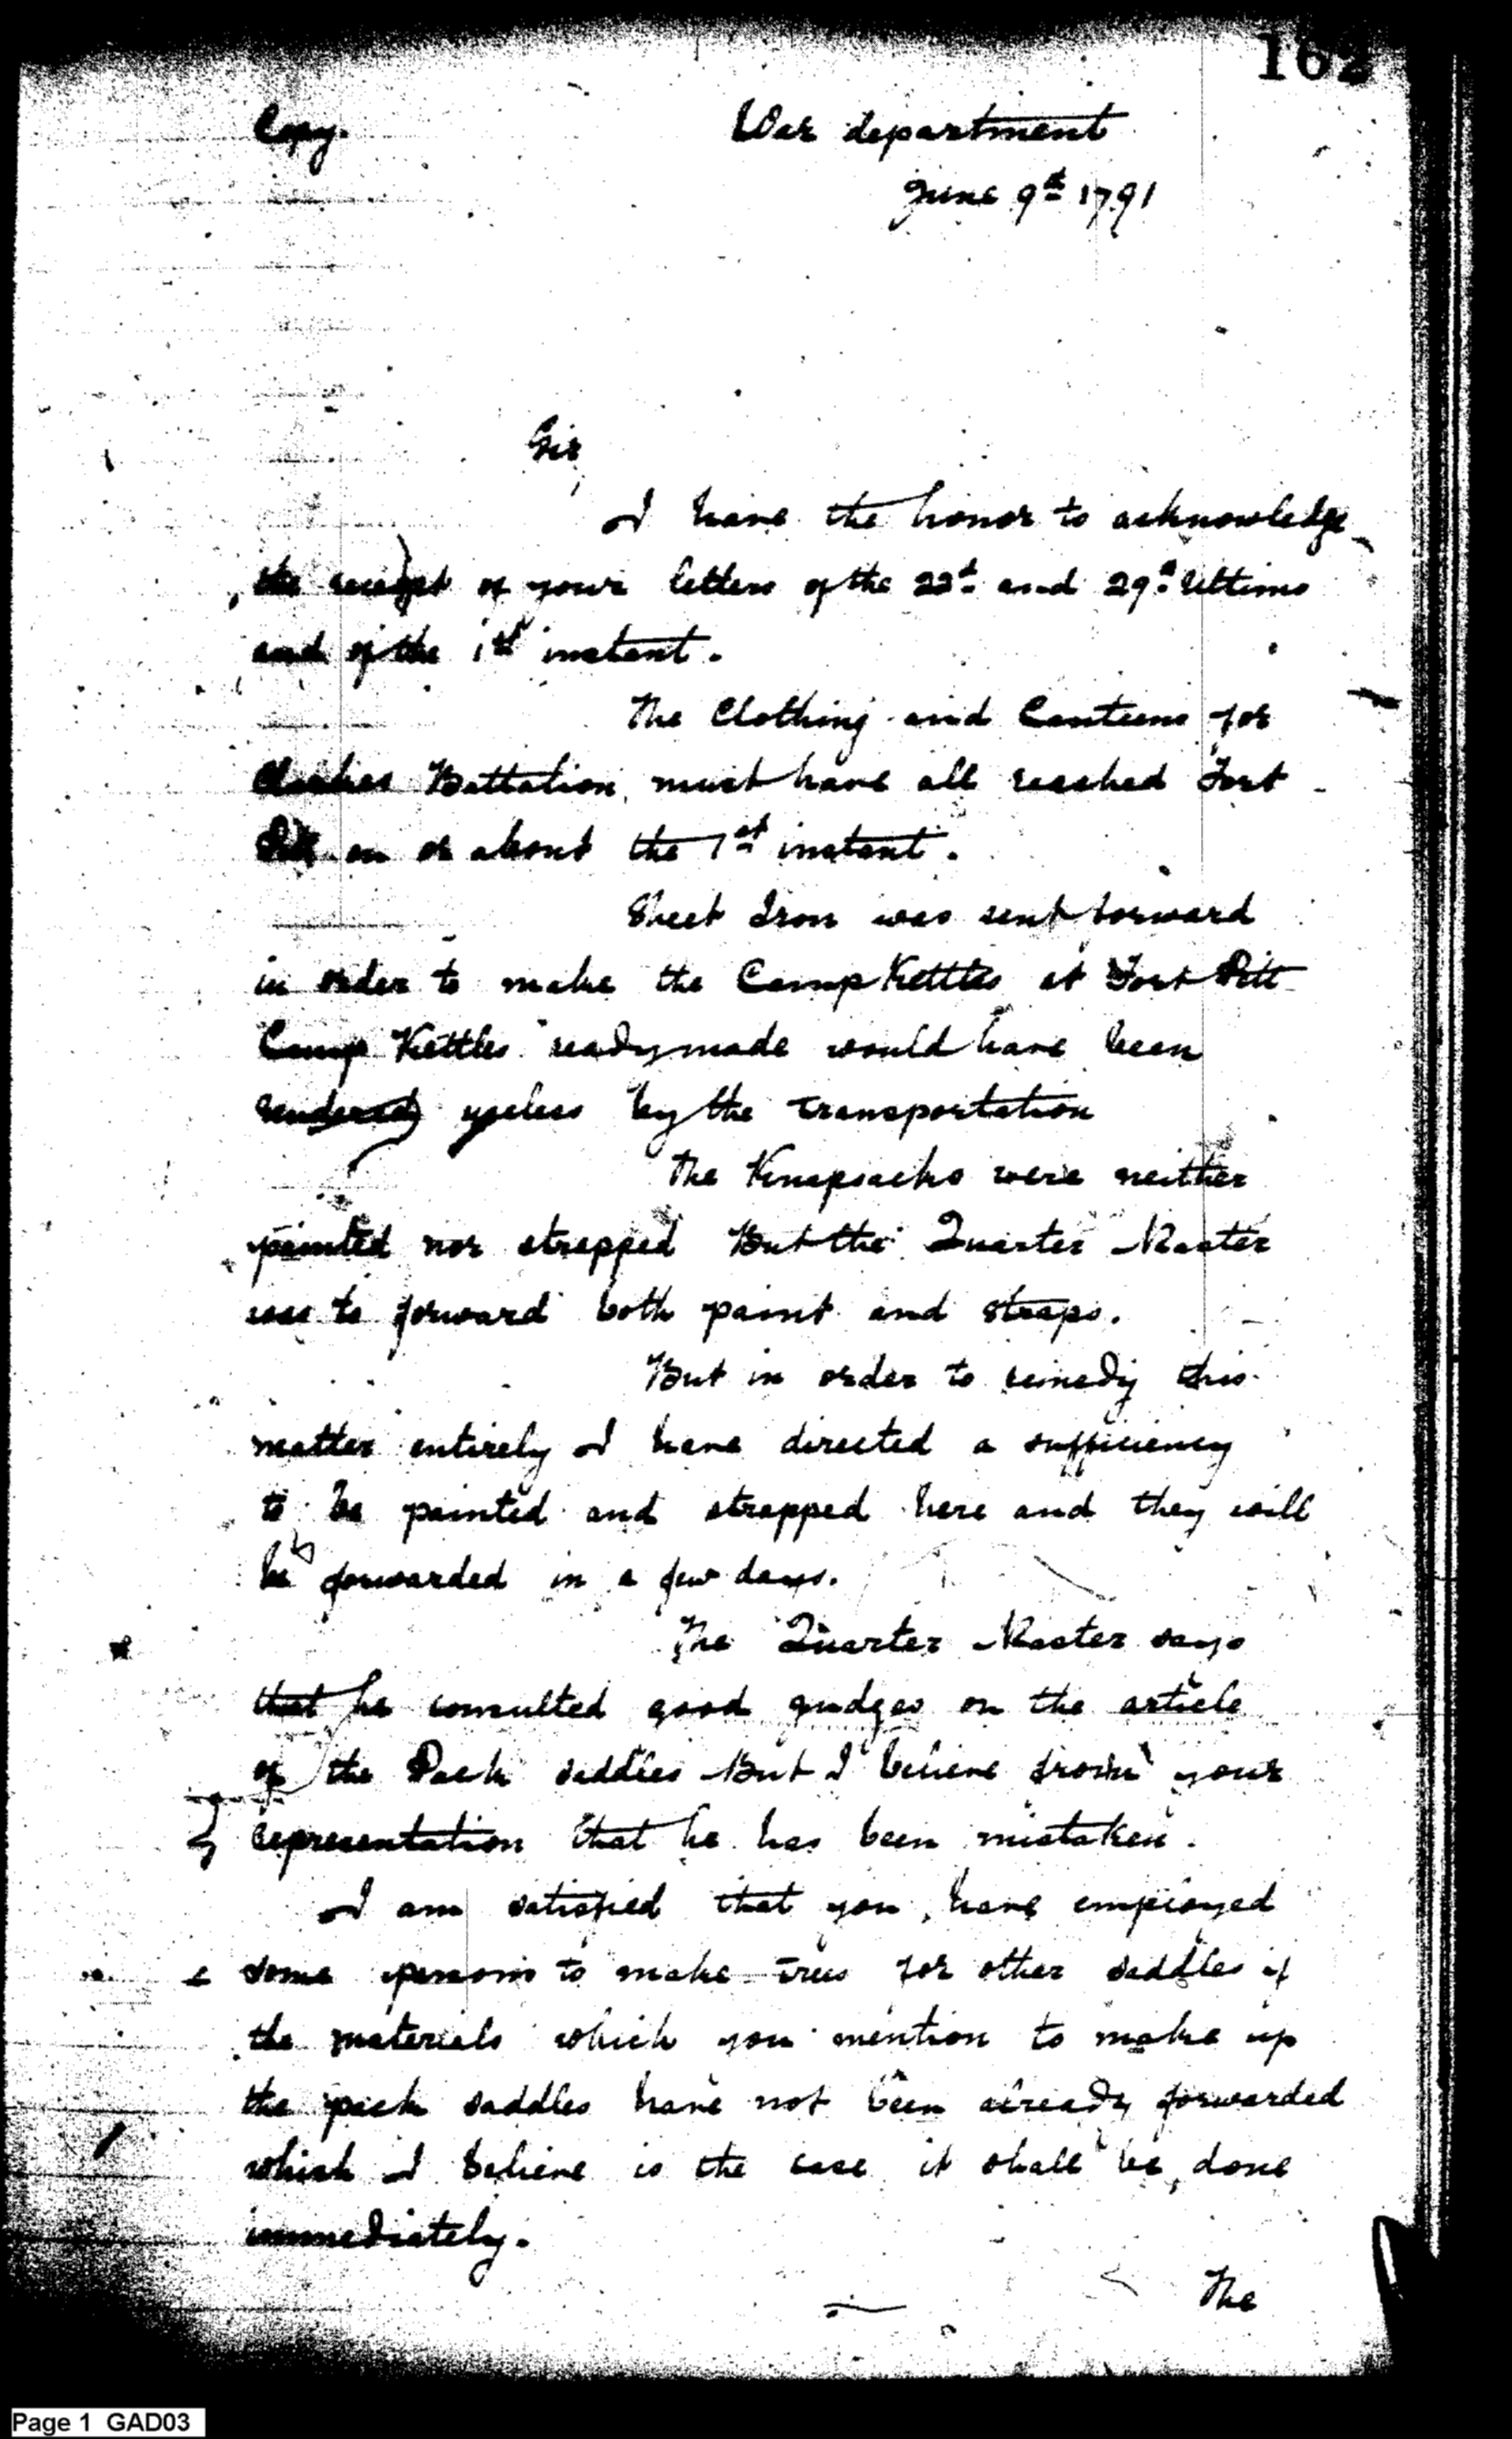 162
Copy.
War department
June 9th 1791
Sir
I have the honor to acknowledge
the receipt of your letters of the 22d and 29th Ultimo
and of the 1st instant.
The Clothing and Canteens for
Clarkes Battalion, must have all reached Fort
Pitt on or about the 1st instant.
Sheet Iron was sent forward
in order to make the Camp Kettles at Fort Pitt
Camp Kettles ready made would have been
rendered useless by the transportation
The Knapsacks were neither
painted nor strapped But the Quarter Master
was to forward both paint and straps.
But in order to remedy this
matter entirely I have directed a sufficiency
to be painted and strapped here and they will
be forwarded in a few days.
The Quarter Master says
that he consulted good judges on the article
of the Pack saddles But I believe from your
representation that he has been mistaken.
I am satisfied that you have employed
some persons to make trees for other saddles if
the materials which you mention to make up
the pack saddles have not been already forwarded
which I believe is the case it shall be done
immediately.
The
Page 1 GAD03